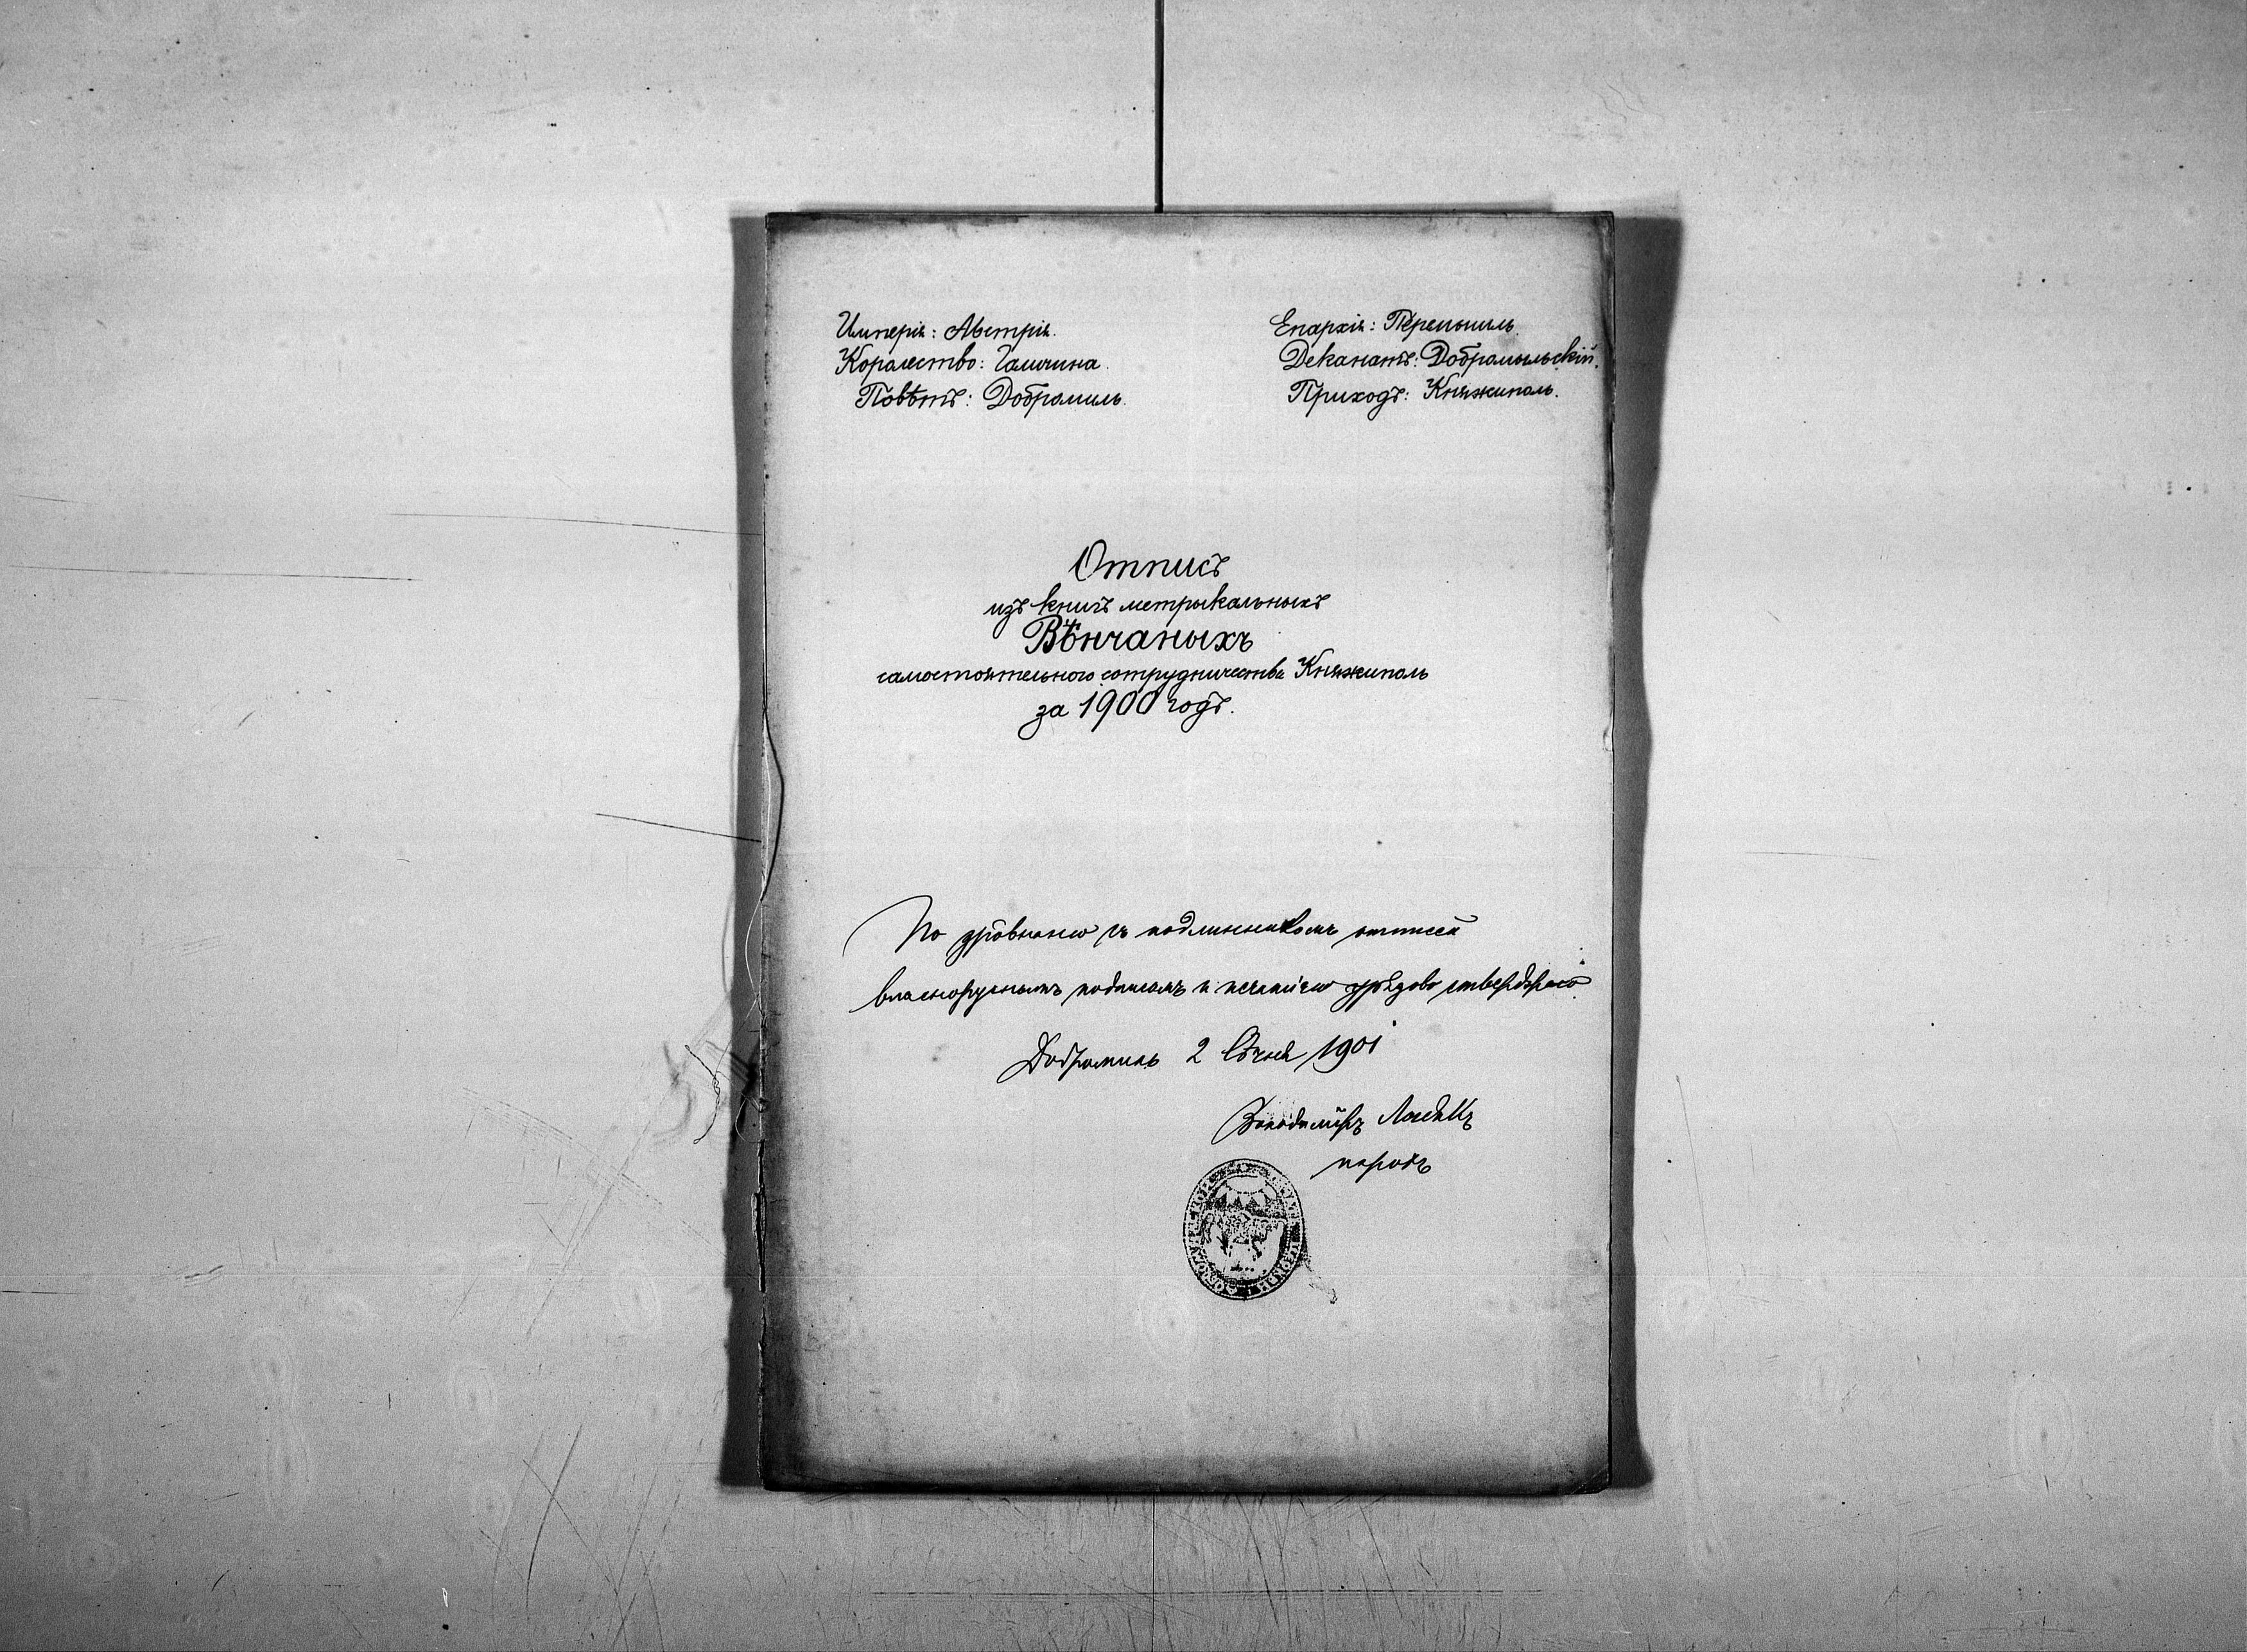 Имперія: Австрія.
Королество: Галичина.
Повѣтъ: Добромиль.
Епархія: Перемышль.
Деканатъ: Добромыльскій.
Приходъ: Княжиполь.
Отписъ
изъ книгъ метрыкальныхъ
Вѣнчаныхъ
самостоятельного сотрудничества Княжиполь
за 1900 годъ.
По зрôвнаню съ подлинникомъ отписей
власноручнымъ подписомъ и печатію урядово ствердж
Добромиль 2 Сѣчня 1901
Володимиръ
парохъ